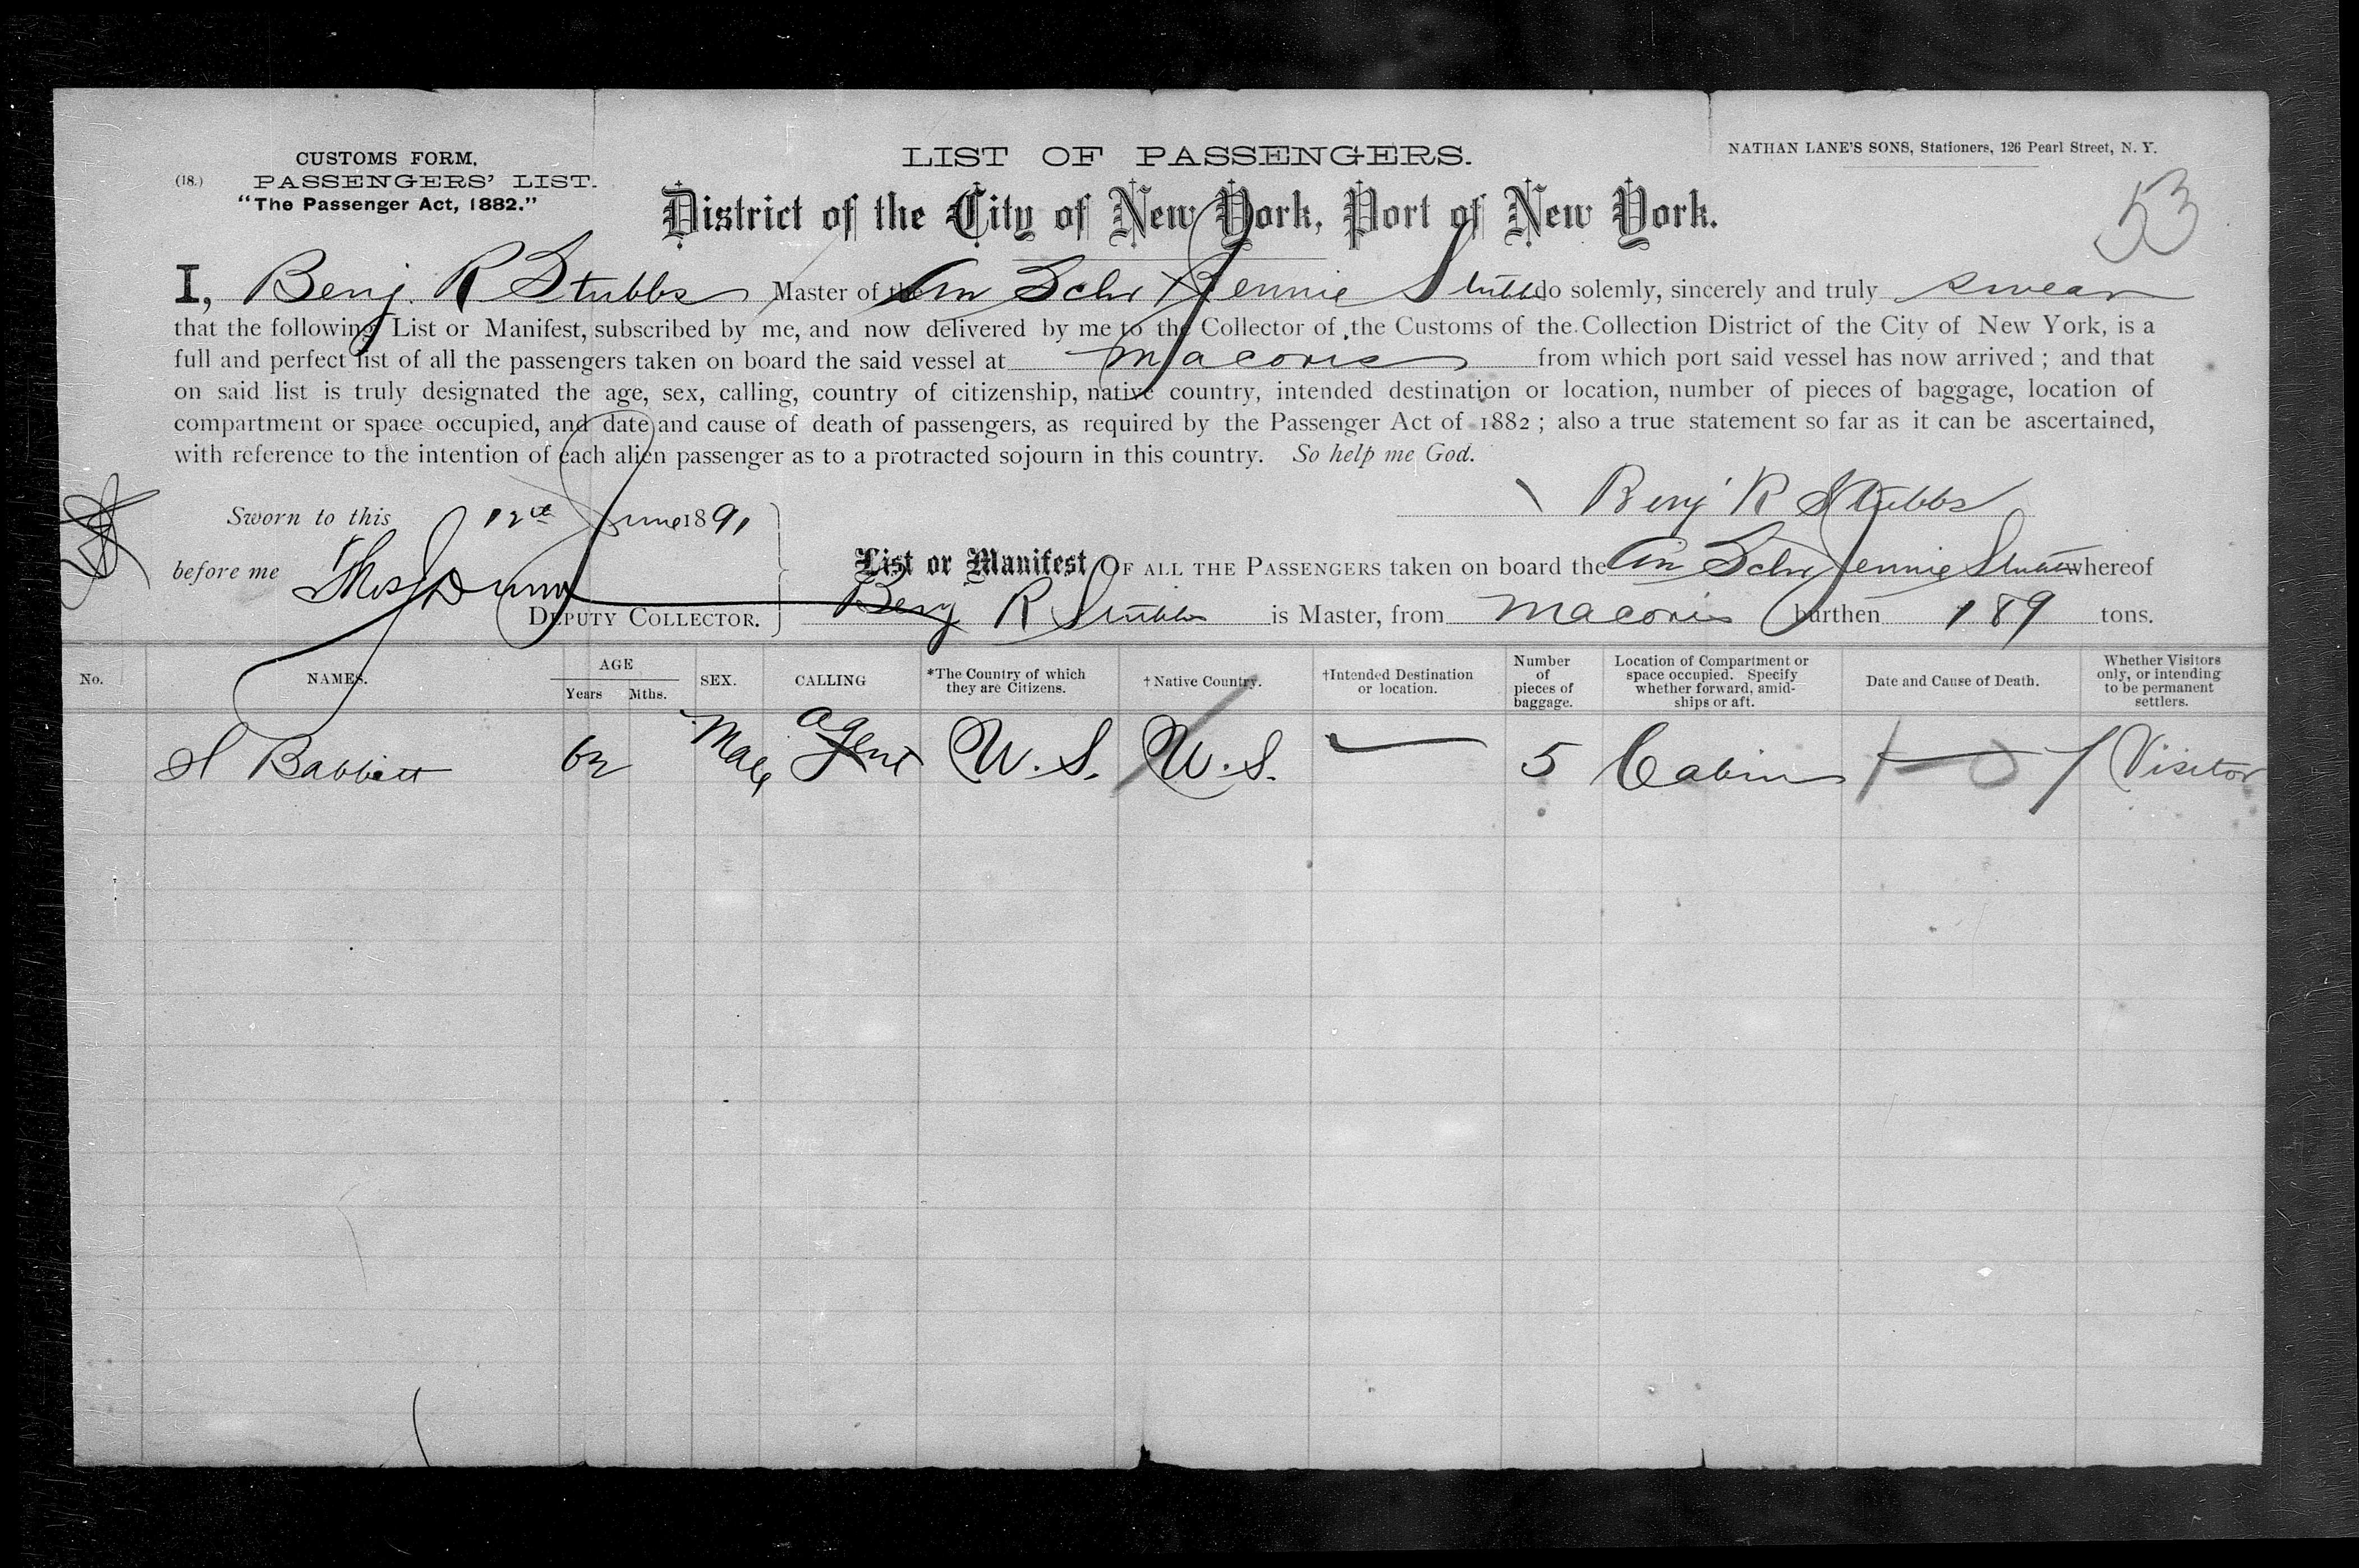 CUSTOMS FORM,
(18.) PASSENGERS' LIST.
"The Passenger Act, 1882."
LIST OF PASSENGERS.
NATHAN LANE'S SONS, Stationers, 126 Pearl Street, N. Y.
53
District of the City of New York, Port of New York.
I, Benj. R Stubbs Master of the Am Schr Jennie Stubbs do solemnly, sincerely and truly swear
that the following List or Manifest, subscribed by me, and now delivered by me to the Collector of the Customs of the Collection District of the City of New York, is a
full and perfect list of all the passengers taken on board the said vessel at Macoris from which port said vessel has now arrived ; and that
on said list is truly designated the age, sex, calling, country of citizenship, native country, intended destination or location, number of pieces of baggage, location of
compartment or space occupied, and date and cause of death of passengers, as required by the Passenger Act of 1882 ; also a true statement so far as it can be ascertained,
with reference to the intention of each alien passenger as to a protracted sojourn in this country. So help me God.
Benj R Stubbs
Sworn to this 12th June 1891
before me Thos Dunn
DEPUTY COLLECTOR.
List or Manifest OF ALL THE PASSENGERS taken on board the Am Schr Jennie Stubbs whereof
Benj R Stubbs is Master, from Macoris burthen 189 tons.
No. NAMES. AGE Years Mths. SEX. CALLING *The Country of which they are Citizens. †Native Country. †Intended Destination or location. Number of pieces of baggage. Location of Compartment or space occupied. Specify whether forward, amidships or aft. Date and Cause of Death. Whether Visitors only, or intending to be permanent settlers.
Babbitt Male Agent U.S. U.S. — 5 Cabin Visitor